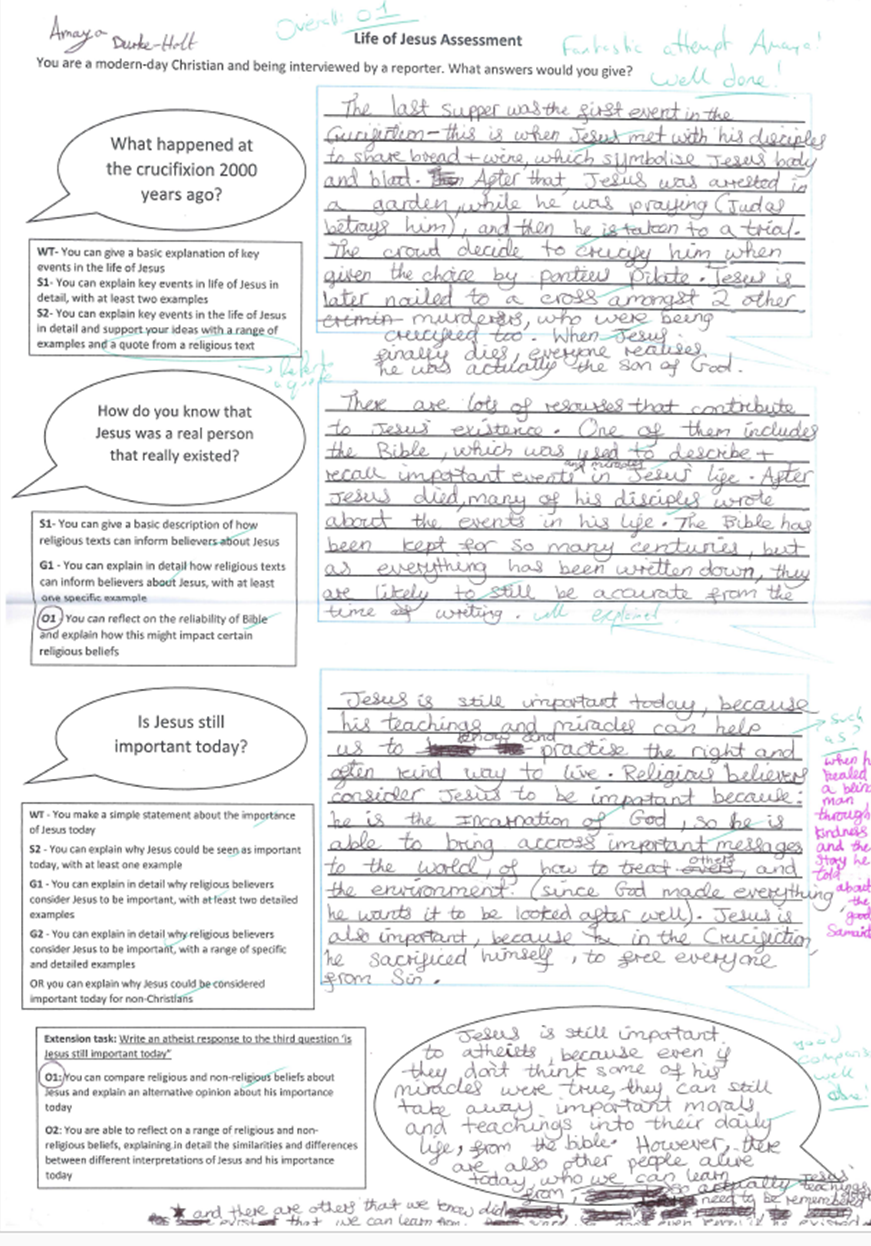 Amaya Durke-Holt
Overall: O1
Life of Jesus Assessment
Fantastic attempt Amaya!
well done!
You are a modern-day Christian and being interviewed by a reporter. What answers would you give?
What happened at
the crucifixion 2000
years ago?
WT- You can give a basic explanation of key
events in the life of Jesus
S1- You can explain key events in life of Jesus in
detail, with at least two examples
S2- You can explain key events in the life of Jesus
in detail and support your ideas with a range of
examples and a quote from a religious text
→ Refer to
a quote
The last supper was the first event in the
Crucifiction - this is when Jesus met with his disciples
to share bread + wine, which symbolise Jesus body
and blood. After that, Jesus was arrested in
a garden, while he was praying (Judas
betrays him), and then he is taken to a trial.
The crowd decide to crucify him, when
given the choice by Pilate. Jesus is
later nailed to a cross amongst 2 other
crimin murderers, who were being
crucified too. When Jesus
finally dies, everyone realises
he was actually the son of God.
How do you know that
Jesus was a real person
that really existed?
S1- You can give a basic description of how
religious texts can inform believers about Jesus
G1 - You can explain in detail how religious texts
can inform believers about Jesus, with at least
one specific example
O1- You can reflect on the reliability of Bible
and explain how this might impact certain
religious beliefs
There are lots of resourses that contribute
to Jesus' existence. One of them includes
the Bible, which was used to describe +
recall important events and miracles in Jesus' life. After
Jesus died, many of his disciples wrote
about the events in his life. The Bible has
been kept for so many centuries, but
as everything has been written down, they
are likely to still be accurate from the
time of writing. well explained
Is Jesus still
important today?
WT - You make a simple statement about the importance
of Jesus today
S2 - You can explain why Jesus could be seen as important
today, with at least one example
G1 - You can explain in detail why religious believers
consider Jesus to be important, with at least two detailed
examples
G2 - You can explain in detail why religious believers
consider Jesus to be important, with a range of specific
and detailed examples
OR you can explain why Jesus could be considered
important today for non-Christians
Jesus is still important today, because
his teachings and miracles can help
us to know and practise the right and
often kind way to live. Religious believers
consider Jesus to be important because:
he is the Incarnation of God, so he is
able to bring accross important messages
to the world, of how to treat others, and
the environment. (since God made everything
he wants it to be looked after well). Jesus is
also important, because in the Crucifiction,
he sacrificed himself, to free everyone
from Sin.
→ such
as?
when h
healed
a blind
man
through
kindness
and the
story he
told
about
the
good
Samarit
Extension task: Write an atheist response to the third question 'is
Jesus still important today"
O1: You can compare religious and non-religious beliefs about
Jesus and explain an alternative opinion about his importance
today
O2: You are able to reflect on a range of religious and non-
religious beliefs, explaining in detail the similarities and differences
between different interpretations of Jesus and his importance
today
Jesus is still important
to atheists, because even if
they don't think some of his
miracles were true, they can still
take away important morals
and teachings into their daily
life, from the bible. However, there
are also other people alive
today, who we can learn
from, so actually Jesus'
teachings
need to be remembered
good
comparison
well
done!
★ and there are others that we know did
exist that we can learn from.